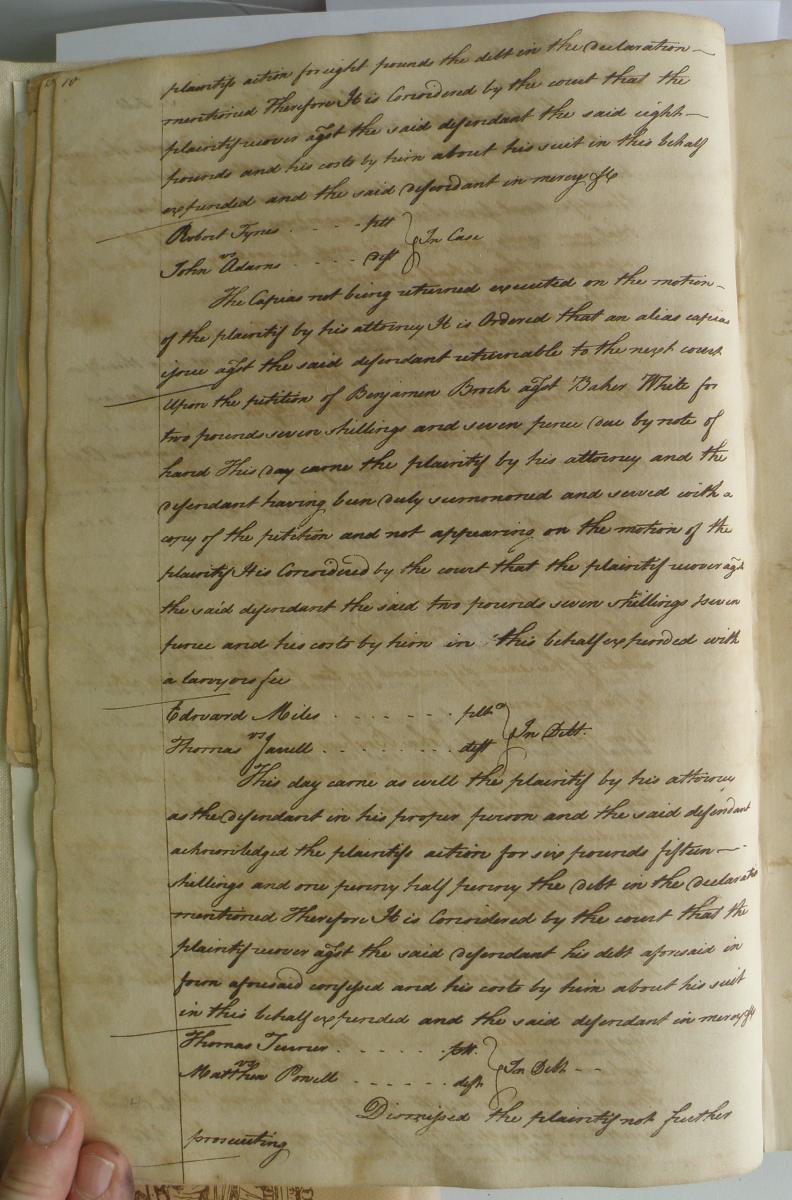 10
plaintifs action for eight pounds the debt in the declaration
mentioned Therefore It is Considered by the court that the
plaintif recover agst the said defendant the said eight
pounds and his costs by him about his suit in this behalf
expended and the said defendant in mercy &c
Robert Tyrus - - - - - pltt } In Case
vs
John Adams - - - - - deft
The Capias not being returned executed on the motion
of the plaintif by his attorney It is Ordered that an alias capias
issue agst the said defendant returnable to the next court
Upon the petition of Benjamen Brock agst Baker White for
two pounds seven shillings and seven pence due by note of
hand This day came the plaintif by his attorney and the
defendant having been duly summoned and served with a
copy of the petition and not appearing on the motion of the
plaintif It is Considered by the court that the plaintif recover agst
the said defendant the said two pounds seven shillings seven
pence and his costs by him in this behalf expended with
a lawyers fee
Edward Miles - - - - - - - pltt } In Debt
vs
Thomas Jarrell - - - - - - - deft
This day came as well the plaintif by his attorney
as the defendant in his proper person and the said defendant
acknowledged the plaintifs action for six pounds fifteen
shillings and one penny half penny the debt in the declaration
mentioned Therefore It is Considered by the court that the
plaintif recover agst the said defendant his debt aforesaid in
form aforesaid confessed and his costs by him about his suit
in this behalf expended and the said defendant in mercy &c
Thomas Turner - - - - - - pltt } In Debt - -
vs
Matthew Powell - - - - - - deft
Dismissed the plaintif not further
prosecuting